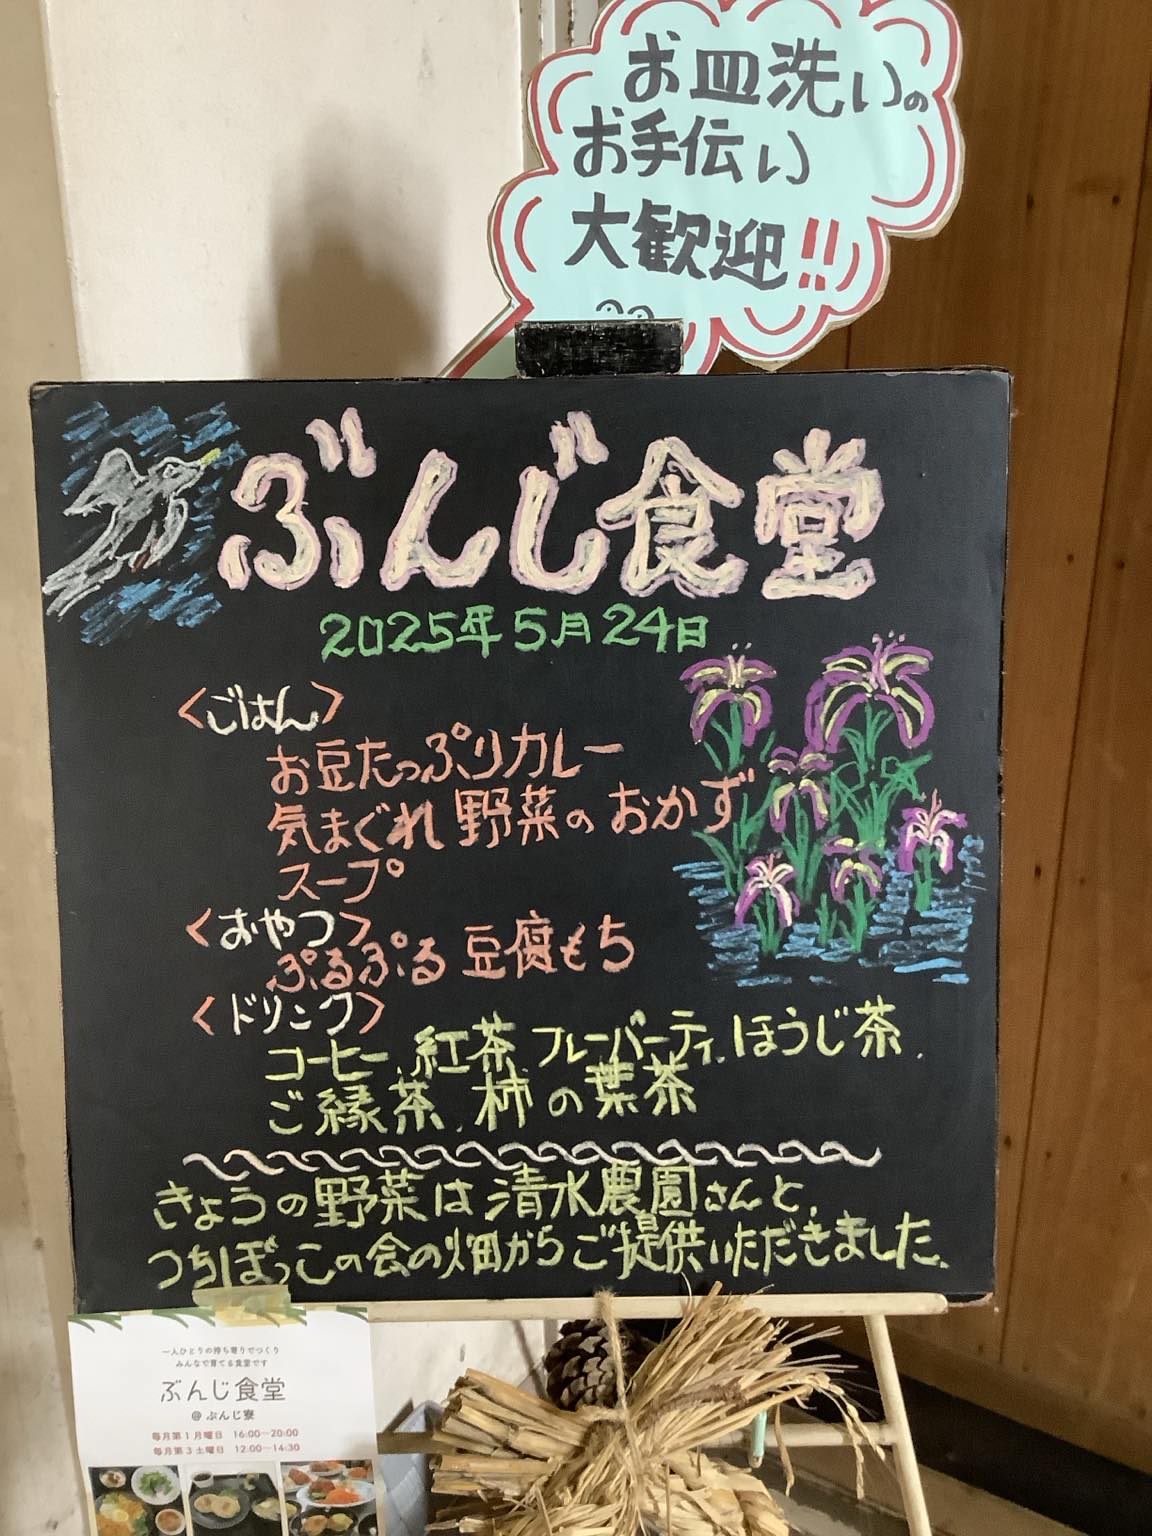 お皿洗いの
お手伝い
大歓迎!!
ぶんじ食堂
2025年5月24日
<ごはん>
お豆たっぷりカレー
気まぐれ野菜のおかず
スープ
<おやつ>
ぷるぷる豆腐もち
<ドリンク>
コーヒー、紅茶、フレーバーティ、ほうじ茶、
ご縁茶、柿の葉茶
きょうの野菜は清水農園さんと、
つちぼっこの会の畑からご提供いただきました。
一人ひとりの持ち寄りでつくり
みんなで育てる食堂です
ぶんじ食堂
@ ぶんじ寮
毎月第1月曜日 16:00〜20:00
毎月第3土曜日 12:00〜14:30